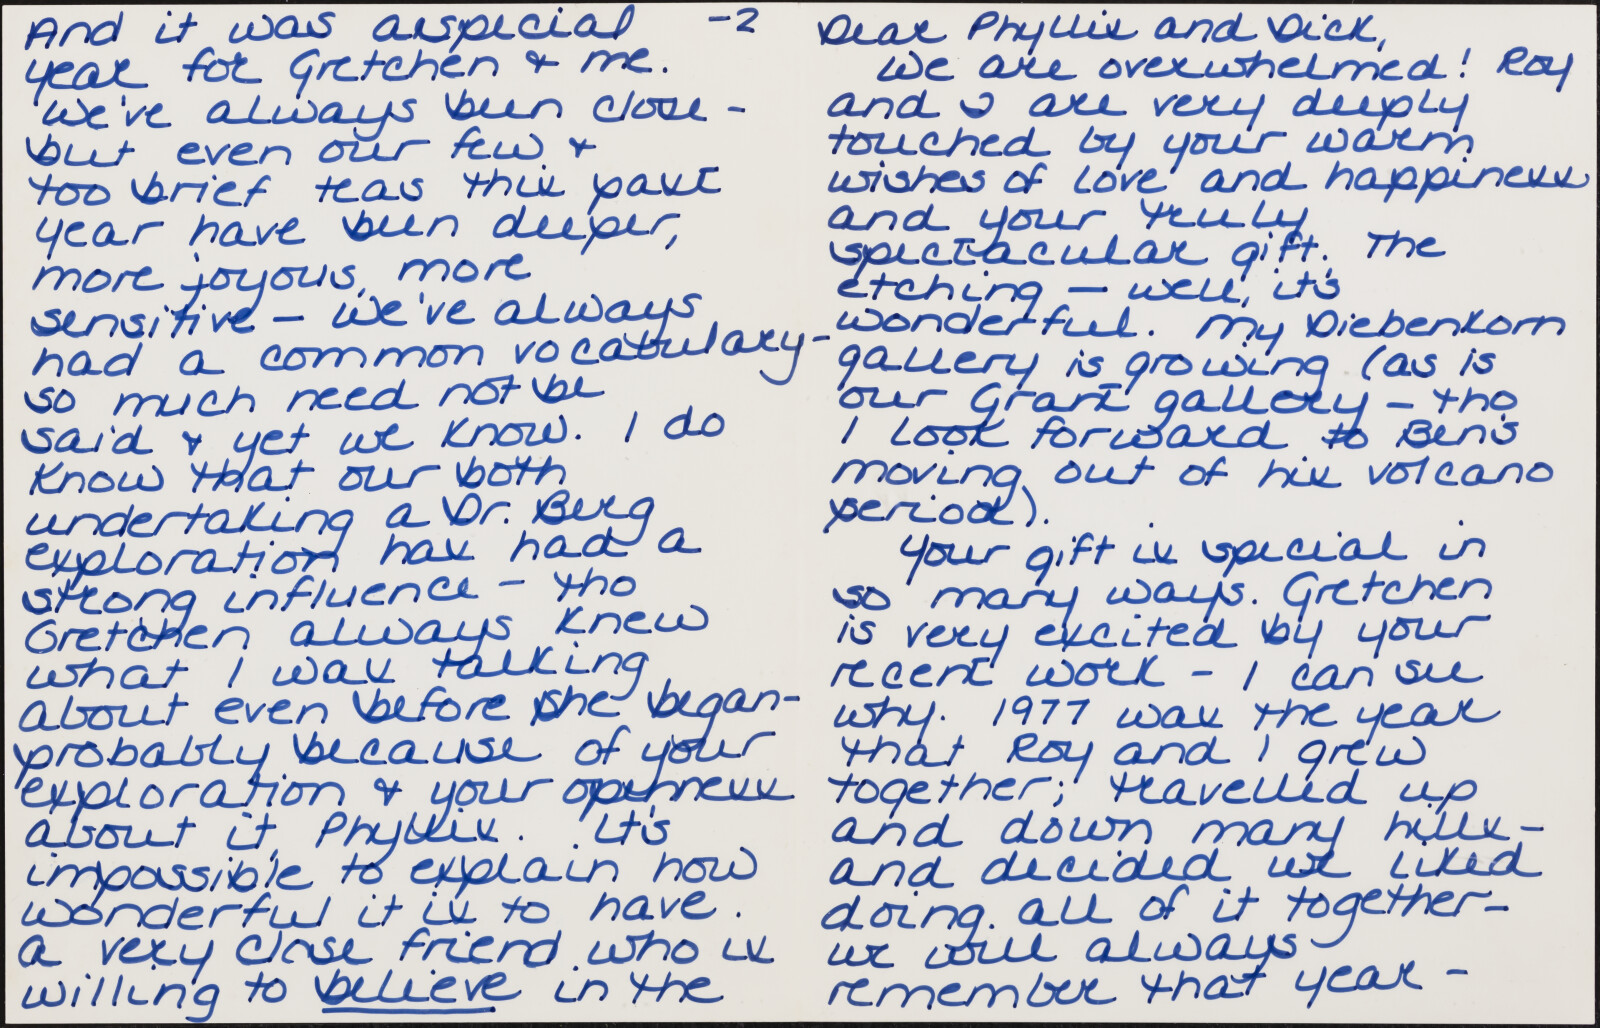 Dear Phyllis and Dick,
We are overwhelmed! Roy
and I are very deeply
touched by your warm
wishes of love and happiness
and your truly
spectacular gift. The
etching — well, it's
wonderful. My Diebenkorn
gallery is growing (as is
our Grant gallery — tho
I look forward to Ben's
moving out of his volcano
period).
Your gift is special in
so many ways. Gretchen
is very excited by your
recent work - I can see
why. 1977 was the year
that Roy and I grew
together; travelled up
and down many hills -
and decided we liked
doing all of it together -
we will always
remember that year -
-2
And it was a special
year for Gretchen & me.
We've always been close -
but even our few &
too brief teas this past
year have been deeper,
more joyous, more
sensitive - we've always
had a common vocabulary -
so much need not be
said & yet we know. I do
know that our both
undertaking a Dr. Berg
exploration has had a
strong influence - tho
Gretchen always knew
what I was talking
about even before she began -
probably because of your
exploration & your openness
about it, Phyllis. It's
impossible to explain how
wonderful it is to have
a very close friend who is
willing to believe in the